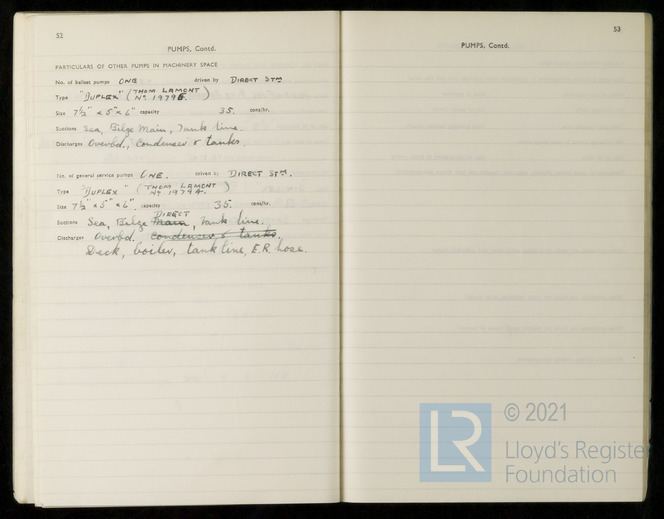 52
PUMPS, Contd.
PARTICULARS OF OTHER PUMPS IN MACHINERY SPACE
No. of ballast pumps ONE driven by DIRECT STM
Type "DUPLEX" (THOM LAMONT No 19795.)
Size 7½" x 5" x 6" capacity 35. tons/hr.
Suctions Sea, Bilge Main, Tank line.
Discharges Overbd., Condenser & tanks.
No. of general service pumps ONE. driven by DIRECT STM.
Type "DUPLEX" (THOM LAMONT No 19794.)
Size 7½" x 5" x 6". capacity 35. tons/hr.
DIRECT
Suctions Sea, Bilge Main, Tank line.
Discharges Overbd. Condenser & tanks.
Deck, boiler, tank line, E.R. hose.
53
PUMPS, Contd.
LR
© 2021
Lloyd's Register
Foundation